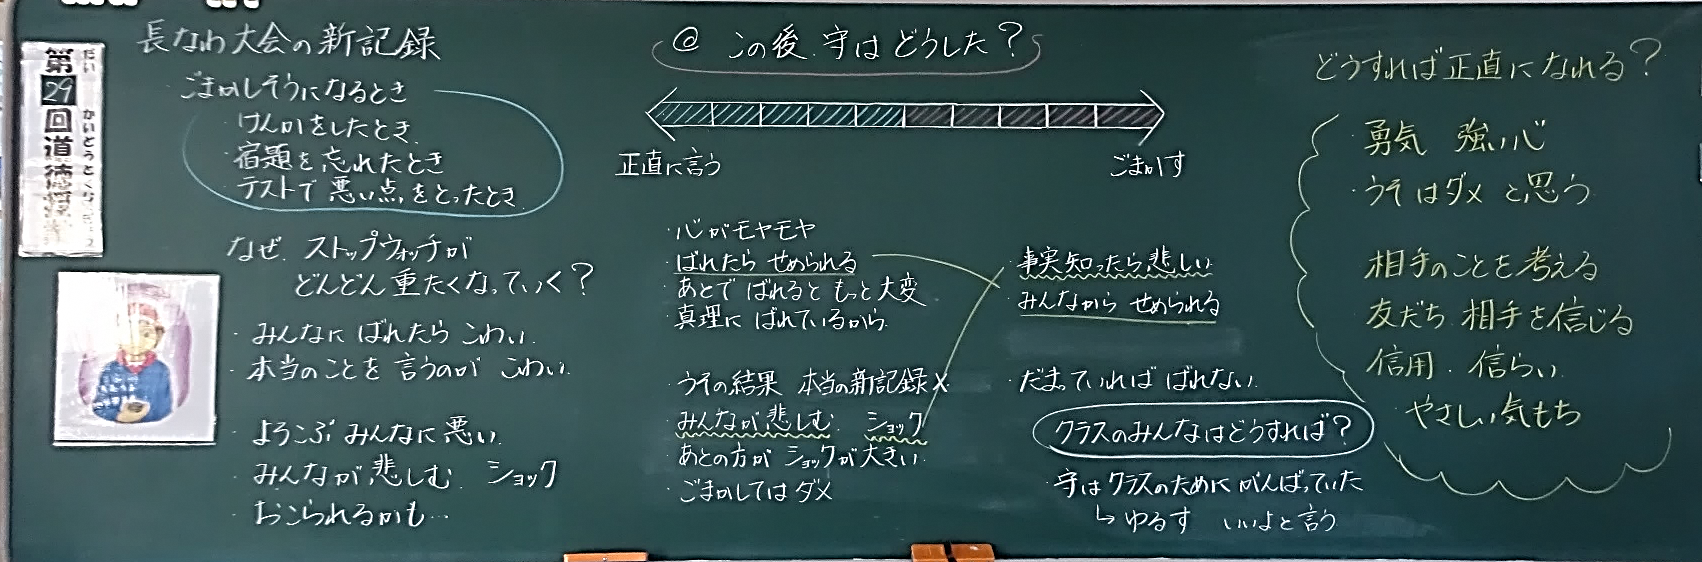 第29回道徳
だい
かいどうとく
長なわ大会の新記録
ごまかしそうになるとき
・けんかをしたとき
・宿題を忘れたとき
・テストで悪い点をとったとき
なぜ ストップウォッチが
どんどん重たくなっていく?
・みんなに ばれたら こわい.
・本当のことを言うのが こわい.
・よろこぶ みんなに悪い.
・みんなが悲しむ. ショック
・おこられるかも…
@ この後、守は どうした?
正直に言う
ごまかす
・心がモヤモヤ
・ばれたら せめられる
・あとで ばれると もっと大変
・真理に ばれているから.
・うその結果 本当の新記録×
・みんなが悲しむ. ショック
・あとの方が ショックが大きい.
・ごまかしてはダメ
・事実知ったら悲しい
・みんなから せめられる
・だまっていれば ばれない.
クラスのみんなはどうすれば?
・守はクラスのために がんばっていた
↳ ゆるす いいよと言う
どうすれば正直になれる?
・勇気 強い心
・うそはダメ と思う
・相手のことを考える
・友だち 相手を信じる
・信用・信らい
・やさしい気もち